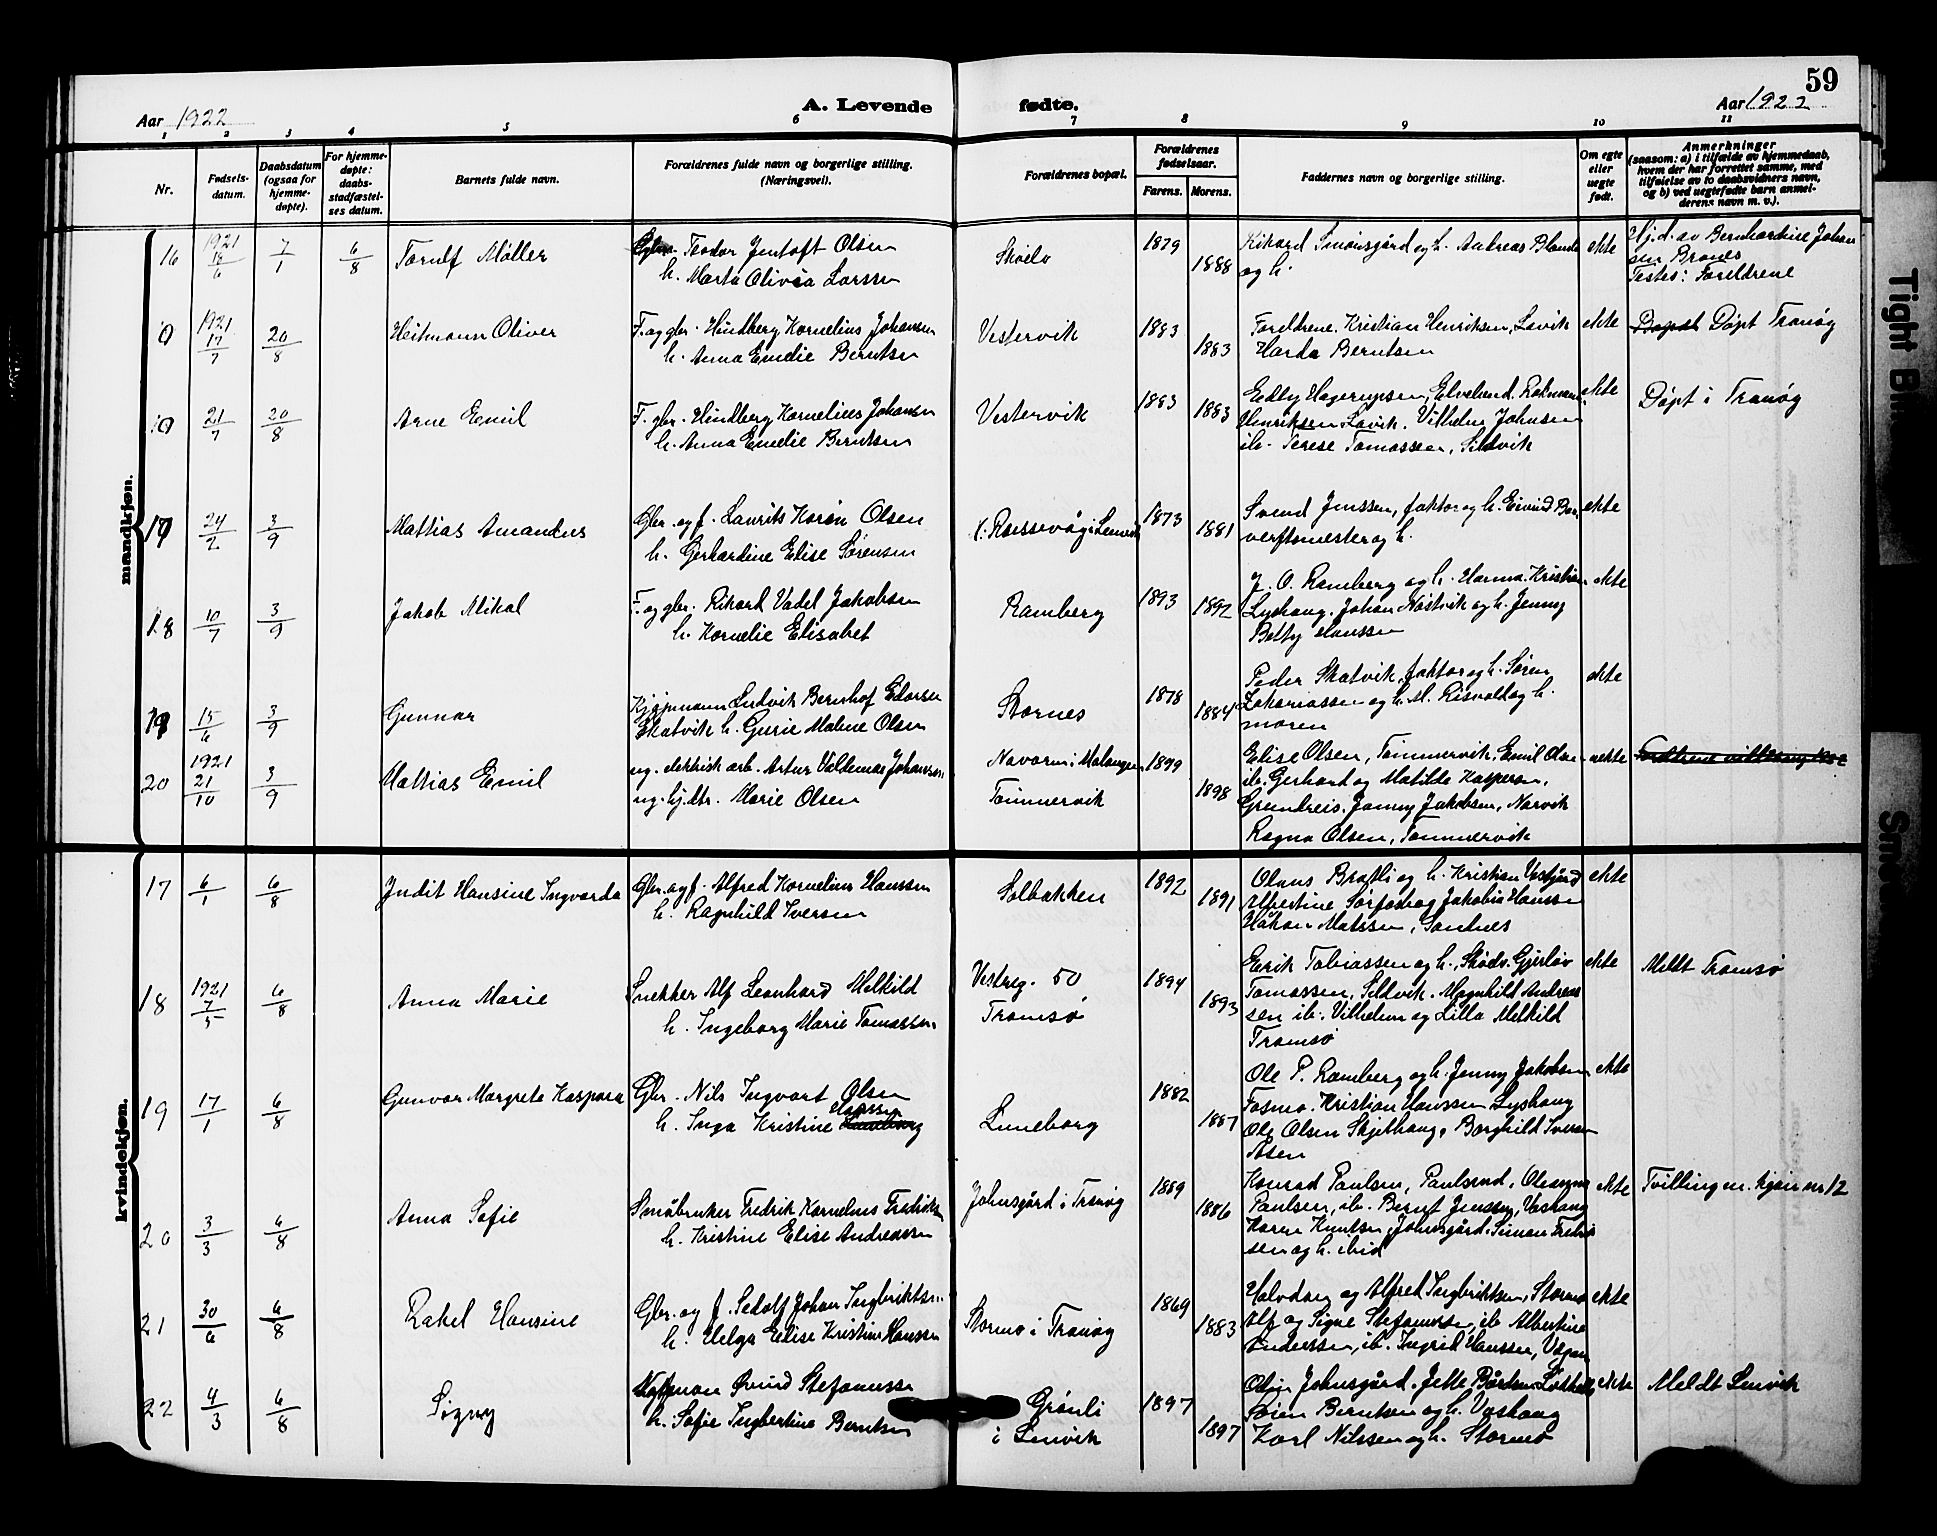 59
Aar 1922
A. Levende fødte.
Aar 1922
1 2 3 4 5 6 7 8 9 10 11
Nr.
Fødsels-
datum.
Daabsdatum
(ogsaa for
hjemme-
døpte).
For hjemme-
døpte:
daabs-
stadfæstel-
ses datum.
Barnets fulde navn.
Forældrenes fulde navn og borgerlige stilling.
(Næringsvei).
Forældrenes bopæl.
Forældrenes
fødselsaar.
Farens. Morens.
Faddernes navn og borgerlige stilling.
Om egte
eller
uegte
født.
Anmerkninger
(saasom: a) i tilfælde av hjemmedaab,
hvem der har forrettet samme, med
tilføielse av to daabsvidners navn,
og b) ved uegtefødte barn anmel-
derens navn m. v.).
mandkjøn.
16 1921 18/6 7/1 6/8 Torulf Møller
Gbr. Teodor Jentoft Olsen
h. Marta Olivia Larssen
1879 1888
Rikard Simonsgård og h. Andreas
og h.
ekte
Hj.d. av Bernhardine Johan
sen
Testes: Foreldrene
0 1921 17/7 20/8 Heitmann Oliver
F. og gbr. Hindberg Kornelius Johansen
h. Anna Emelie Berntsen
Vestervik 1883 1883
Foreldrene. Kristian Henriksen, Lavik
Harda Berntsen
ekte
Døpt Tranøy
0 21/7 20/8 Arne Emil
F. gbr. Hindberg Kornelius Johansen
h. Anna Emelie Berntsen
Vestervik 1883 1883
Edly Hagerupsen, Elvelund,
Henriksen Lavik. Vilhelm Johnsen
ib. Terese Tomassen, Sildvik
ekte
Døpt i Tranøy
17 24/2 3/9 Mathias Amandus
Gbr. og f. Laurits Korén Olsen
h. Gerhardine Elise Sørensen
i Lenvik 1873 1881
Svend Jenssen, faktor og h. Eivind
verftsmester og h.
ekte
18 10/7 3/9 Jakob Mikal
F. og gbr. Rikard Vadel Jakobsen
h. Kornelie Elisabet
Ramberg 1893 1892
J. O. Ramberg og h. Harma. Kristian
Lyshaug. Johan Nöstvik og h. Jenny
Betty Hanssen
ekte
19 15/6 3/9 Gunnar
Kjøpmann Ludvik Bernhof
Skatvik h. Gurie Malene Olsen
Stornes 1878 1884
Peder Skatvik, faktor og h. Søren
Zakariassen og h. M. Risvold og h.
moren
ekte
20 1921 21/10 3/9 Mathias Emil
ug. elektrisk arb. Artur Valdemar Johansen
ug. hj.dtr. Marie Olsen
i Malangen
Tømmervik 1899 1898
Elise Olsen, Tømmervik. Emil Olsen
ib. Gerhard og Matilde Kaspersen,
Grundreis. Jenny Jakobsen, Narvik
Ragna Olsen, Tømmervik
uekte
kvindekjøn.
17 6/1 6/8 Judit Hansine Ingvarda
Gbr. og f. Alfred Kornelius Hanssen
h. Ragnhild Iversen
Solbakken 1892 1891
Olaus Bratli og h. Kristian Vestjord
Albertine Sørfosbog Jakobia Hanssen
Håkon Matssen, Sandnes
ekte
18 1921 7/5 6/8 Anna Marie
Snekker Alf Leonhard Melkild
h. Ingeborg Marie Tomassen
Vestreg. 50
Tromsø 1894 1893
Eerik Tobiassen og h.
Tomassen, Sildvik. Magnhild Andreas
sen ib. Vilhelm og Lilla Melkild
Tromsø
ekte
Meldt Tromsø
19 17/1 6/8 Gunvor Margrete Kaspara
Gbr. Nils Ingvart Olsen
h. Inga Kristine
Luneborg 1882 1887
Ole P. Ramberg og h. Jenny Jakobsen
Fosmo. Kristian Hanssen Lyshaug
Ole Olsen Skjelhaug, Borghild Iversen
Åsen
ekte
20 3/3 6/8 Anna Sofie
Småbruker Fredrik Kornelius Fredriksen
h. Kristine Elise Andreassen
Johnsgård i Tranøy 1889 1886
Konrad Paulsen, Paulsrud, Oleanna
Paulsen, ib. Bernt Jenssen, Vashaug
Karen Knutsen, Johnsgård. Simon Fredrik
sen og h. ibid
ekte
Tvilling m. kjøn nr 12
21 30/6 6/8 Rakel Hansine
Gbr. og f. Sedolf Johan Ingbriktsen
h. Helga Elise Kristine Hanssen
Stormo i Tranøy 1869 1883
Halvdan og Alfred Ingbriktsen, Stormo
Alf og Signe Stefanussen, ib Albertine
Anderssen, ib. Ingrid Hanssen,
ekte
22 4/3 6/8 Signy
Øvind Stefanussen
h. Sofie Ingbertine Berntsen
Grönli
i Lenvik 1897 1897
Johnsgård. Jette
Berntsen og h. Vashaug
Karl Nilssen og h. Stormo
ekte
Meldt Lenvik
Tight Bi